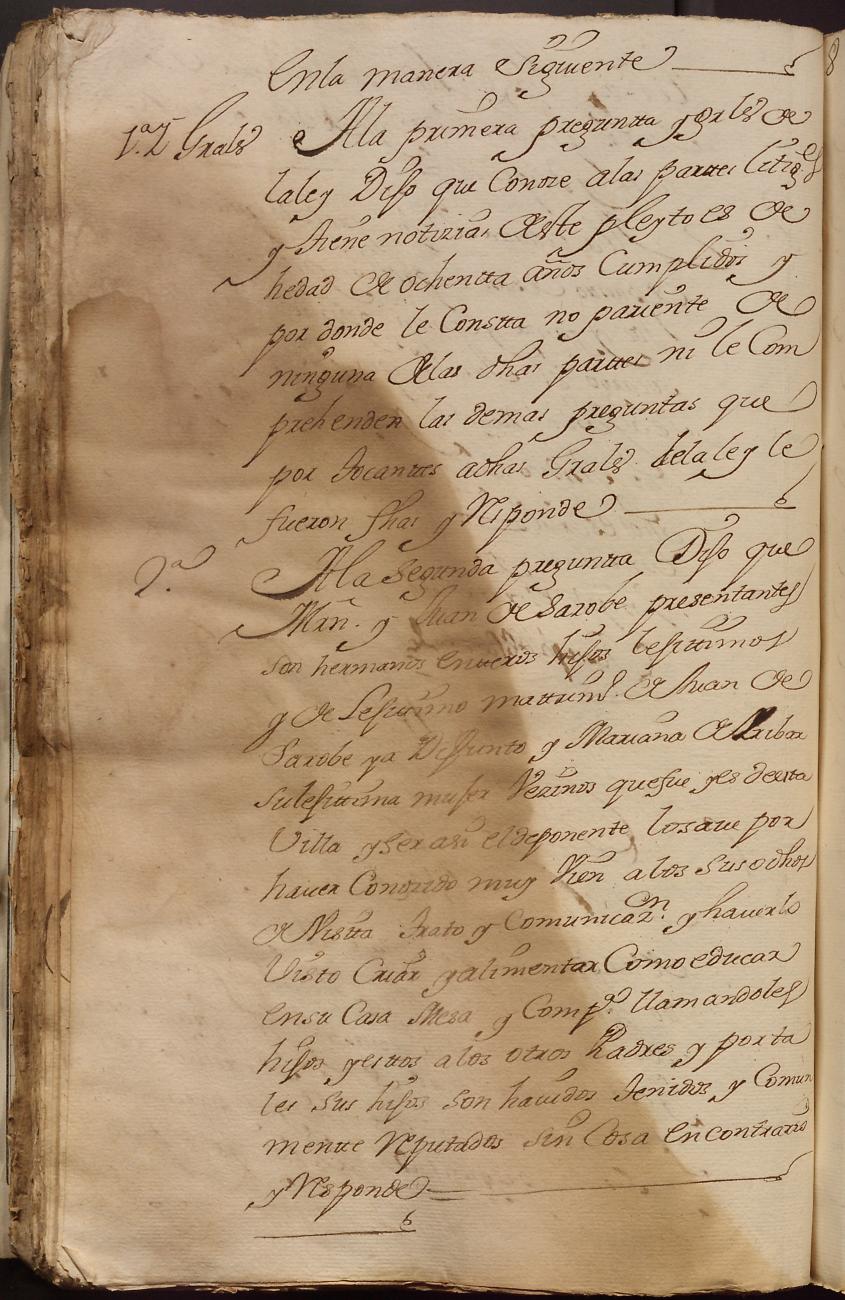 Enla manera siguiente
1.ª y Grales Ala primera preguntta y grles de
laley Dijo que Conoze alas parttes litigtes
y tiene notizia, deeste pleyto es de
hedad de ochentta años Cumplidos y
por donde le Constta no pariente de
ninguna delas dhas parttes ni le Com
prehenden las demas preguntas que
por tocanttes adhas Grales delaley le
fueron fhas y Responde
2.ª Ala Segunda preguntta Dijo que
Mrn. y Juan de Sarobe presentantes
son hermanos enteros hijos lejittimos
y de Lejittimo mattrim.º de Juan de
Sarobe ya Difunto y Mariana de Arribar
sulejittima mujer Vezinos quefue yes deesta
Villa yser asi eldeponente losave por
haver Conozido muy Vien alos susodhos
de Vistta trato y Comunicaz.n y haverlo
Visto Criar yalimentar Como educar
ensu Casa Mesa y Comp.ª llamandoles
hijos yesttos alos otros Padres y porta
les sus hijos son havidos tenidos y Comun
mentte Reputados sin Cosa encontrario
y Responde